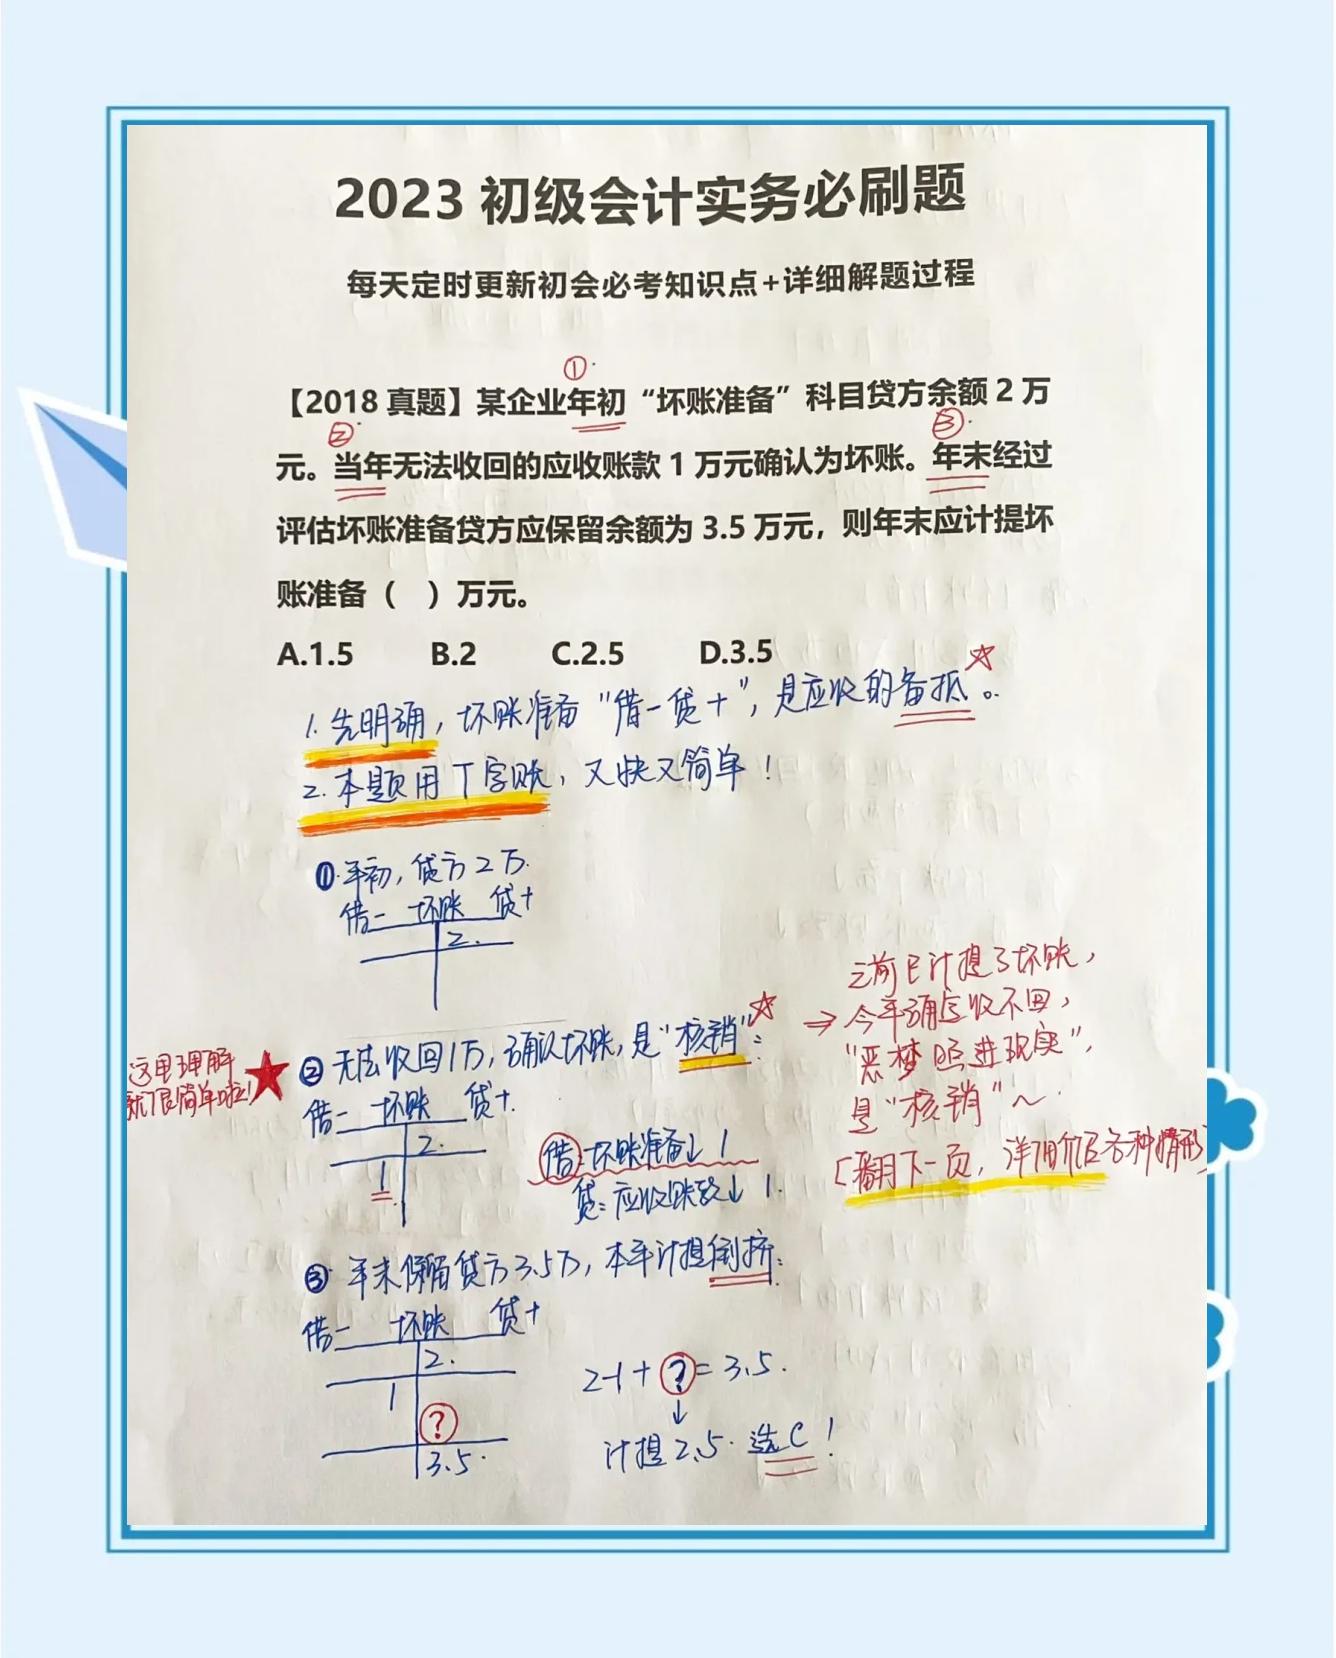 2023 初级会计实务必刷题
每天定时更新初会必考知识点+详细解题过程
①
【2018 真题】某企业年初“坏账准备”科目贷方余额 2 万
② ③
元。当年无法收回的应收账款 1 万元确认为坏账。年末经过
评估坏账准备贷方应保留余额为 3.5 万元，则年末应计提坏
账准备（ ）万元。
A.1.5 B.2 C.2.5 D.3.5
1. 先明确，坏账准备“借-贷+”，是应收的备抵。
2. 本题用T字账，又快又简单！
① 年初，贷方2万.
借- 坏账 贷+
2.
② 无法收回1万，确认坏账，是“核销”：
借- 坏账 贷+.
2.
1
借:坏账准备↓ 1
贷:应收账款↓ 1.
这里理解
就很简单啦!
之前已计提了坏账，
⇒ 今年确定收不回，
“恶梦照进现实”，
是“核销”～
[翻下一页，详细介绍各种情形]
③ 年末保留贷方3.5万，本年计提倒挤：
借- 坏账 贷+
2.
1
?
3.5.
2-1+?=3.5.
↓
计提2.5. 选C！